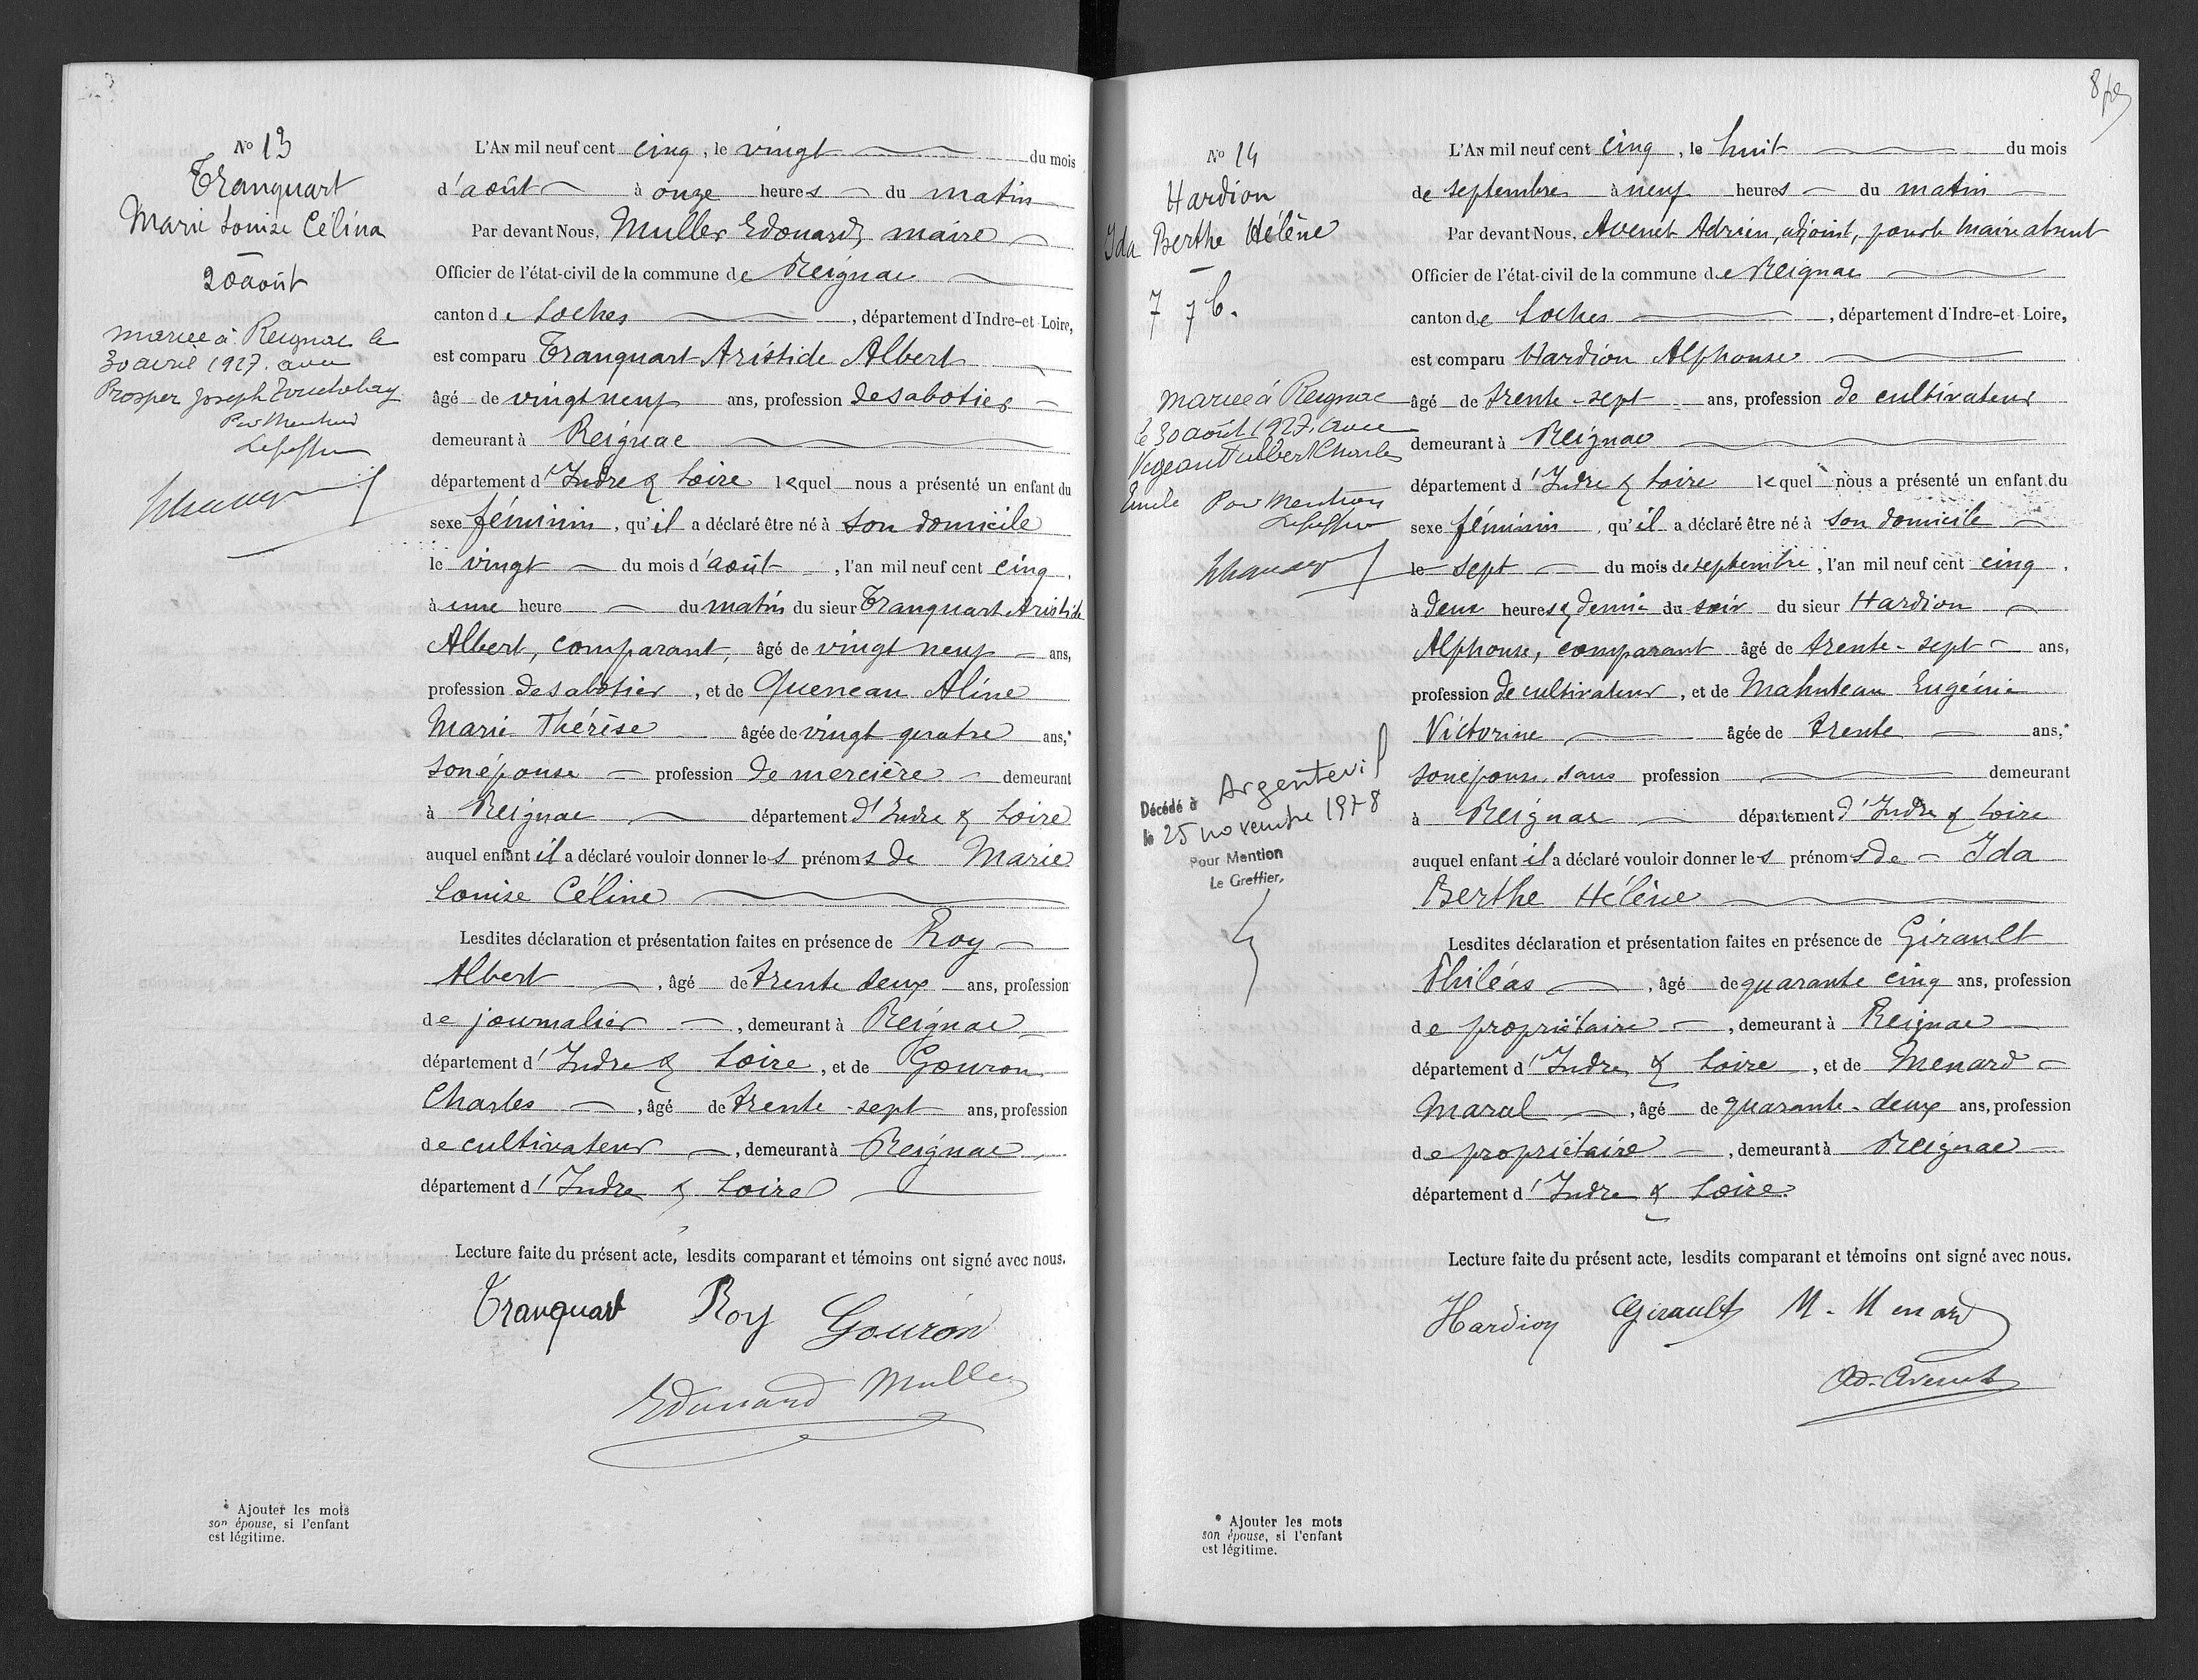 Nº 13
Tranquart
Marie Louise Célina
20 août
mariée à Reignac le
30 avril 1927 avec
Prosper Joseph
Par Mention
L'AN mil neuf cent cinq, le vingt du mois
d'août à onze heures du matin
Par devant Nous, Muller Edouard, maire
Officier de l'état-civil de la commune de Reignac
canton de Loches, département d'Indre-et-Loire,
est comparu Tranquart Aristide Albert
âgé de vingt neuf ans, profession de sabotier
demeurant à Reignac
département d'Indre & Loire lequel nous a présenté un enfant du
sexe féminin, qu'il a déclaré être né à son domicile
le vingt du mois d'août, l'an mil neuf cent cinq.
à une heure du matin du sieur Tranquart Aristide
Albert, comparant, âgé de vingt neuf ans,
profession de sabotier, et de Queneau Aline
Marie Thérèse âgée de vingt quatre ans,*
son épouse profession de mercière demeurant
à Reignac département d'Indre & Loire
auquel enfant il a déclaré vouloir donner les prénoms de Marie
Louise Céline
Lesdites déclaration et présentation faites en présence de Roy
Albert, âgé de trente deux ans, profession
de journalier, demeurant à Reignac
département d'Indre & Loire, et de Gouron
Charles, âgé de trente-sept ans, profession
de cultivateur, demeurant à Reignac
département d'Indre & Loire
Lecture faite du présent acte, lesdits comparant et témoins ont signé avec nous.
Tranquart Roy Gouron
Edouard Muller
* Ajouter les mots
son épouse, si l'enfant
est légitime.
8
Nº 14
Hardion
Ida Berthe Hélène
7 7b.
Mariée à Reignac
le 30 août 1927 avec
Vigeant Albert Charles
Emile Par Mention
Décédé à Argenteuil
le 25 novembre 1978
Pour Mention
Le Greffier,
L'AN mil neuf cent cinq, le huit du mois
de septembre à neuf heures du matin
Par devant Nous, Avenet Adrien, adjoint, pour le maire absent
Officier de l'état-civil de la commune de Reignac
canton de Loches, département d'Indre-et-Loire,
est comparu Hardion Alphonse
âgé de trente-sept ans, profession de cultivateur
demeurant à Reignac
département d'Indre & Loire lequel nous a présenté un enfant du
sexe féminin, qu'il a déclaré être né à son domicile
le sept du mois de septembre, l'an mil neuf cent cinq.
à deux heures & demie du soir du sieur Hardion
Alphonse, comparant âgé de trente-sept ans,
profession de cultivateur, et de Mahuteau Eugénie
Victorine âgée de trente ans,*
son épouse, sans profession demeurant
à Reignac département d'Indre & Loire
auquel enfant il a déclaré vouloir donner les prénoms de Ida
Berthe Hélène
Lesdites déclaration et présentation faites en présence de Girault
Philéas, âgé de quarante cinq ans, profession
de propriétaire, demeurant à Reignac
département d'Indre & Loire, et de Menard
Maral, âgé de quarante-deux ans, profession
de propriétaire, demeurant à Reignac
département d'Indre & Loire.
Lecture faite du présent acte, lesdits comparant et témoins ont signé avec nous.
Hardion Girault M. Menard
Ad. Avenet
* Ajouter les mots
son épouse, si l'enfant
est légitime.